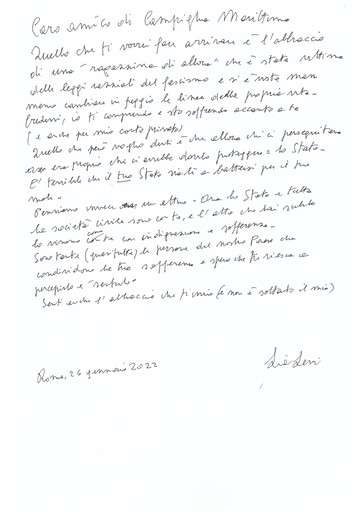 Caro amico di Campiglia Marittima
Quello che ti vorrei far arrivare è l'abbraccio
di una "ragazzina di allora" che è stata vittima
delle leggi razziali del fascismo e si è vista man
mano cambiare in peggio la linea della propria vita.
Credimi, io ti comprendo e sto soffrendo accanto a te
(e anche per mio conto privato)
Quello che però voglio dirti è che allora chi ci perseguitava
era proprio chi ci avrebbe dovuto proteggere: lo Stato.
E' terribile che il tuo Stato a battersi per il tuo
male.
Pensiamo invece un attimo. Ora lo Stato e tutta
la società civile sono con te, e l'atto che hai subito
lo vivono con te con indignazione e sofferenza.
Sono tante (quasi tutte) le persone del nostro Paese che
condividono la tua sofferenza e spero che tu riesca a
percepirlo e "sentirlo"
Senti anche l'abbraccio che ti invio (e non è soltanto il mio)
Roma, 26 gennaio 2022
Lia Levi